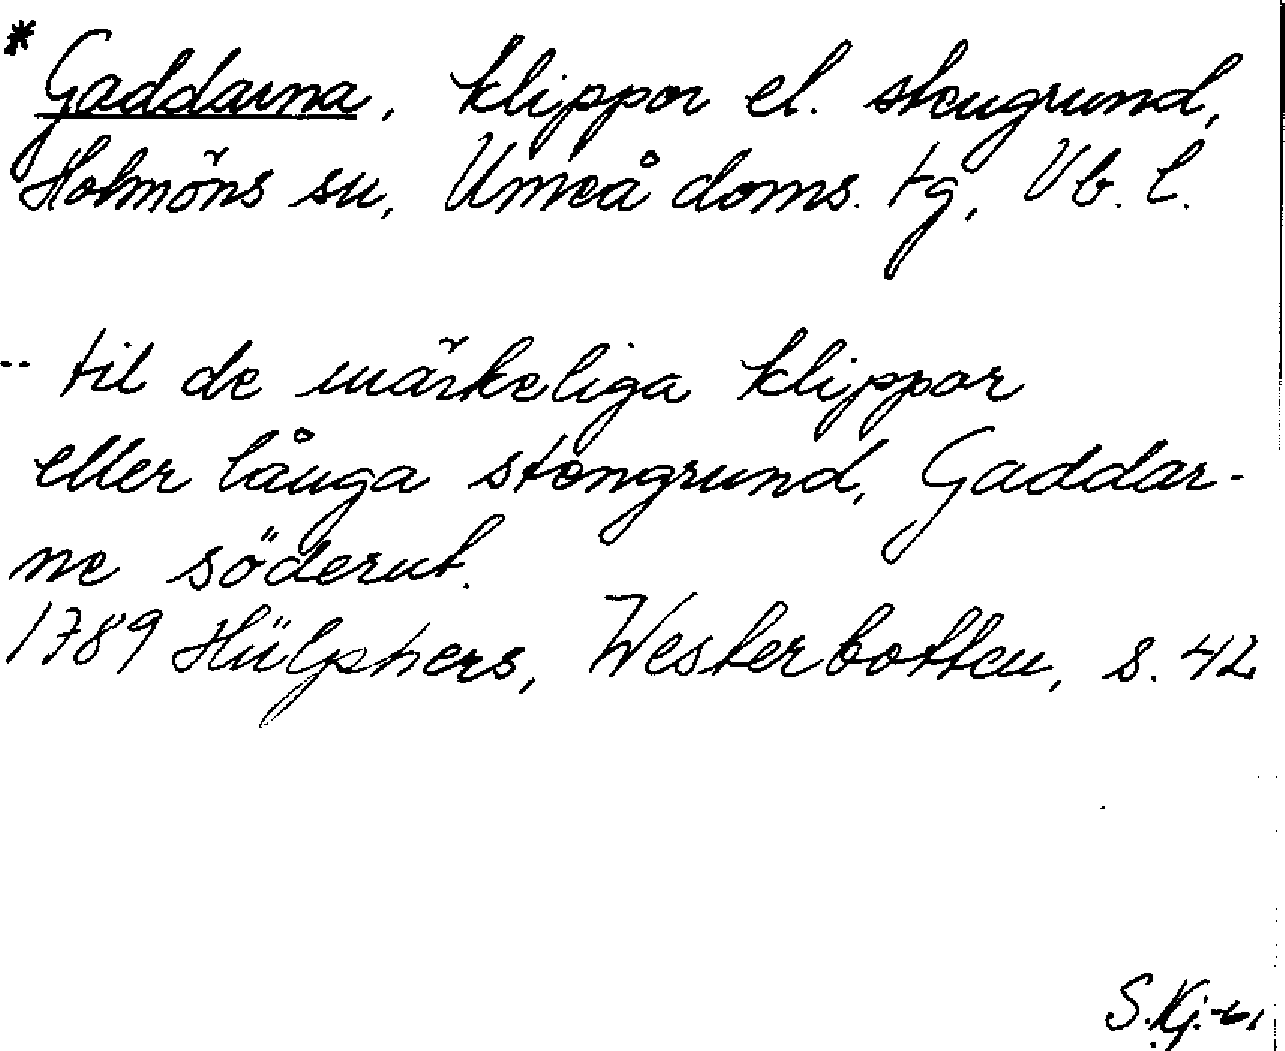 * Gaddarna, klippor el. stengrund,
Holmöns sn, Umeå doms. tg, Vb. l.
-- til de märkeliga klippor
eller långa stengrund, Gaddar-
ne söderut.
1789 Hülphers, Westerbotten, s. 42
S.Kj.-61